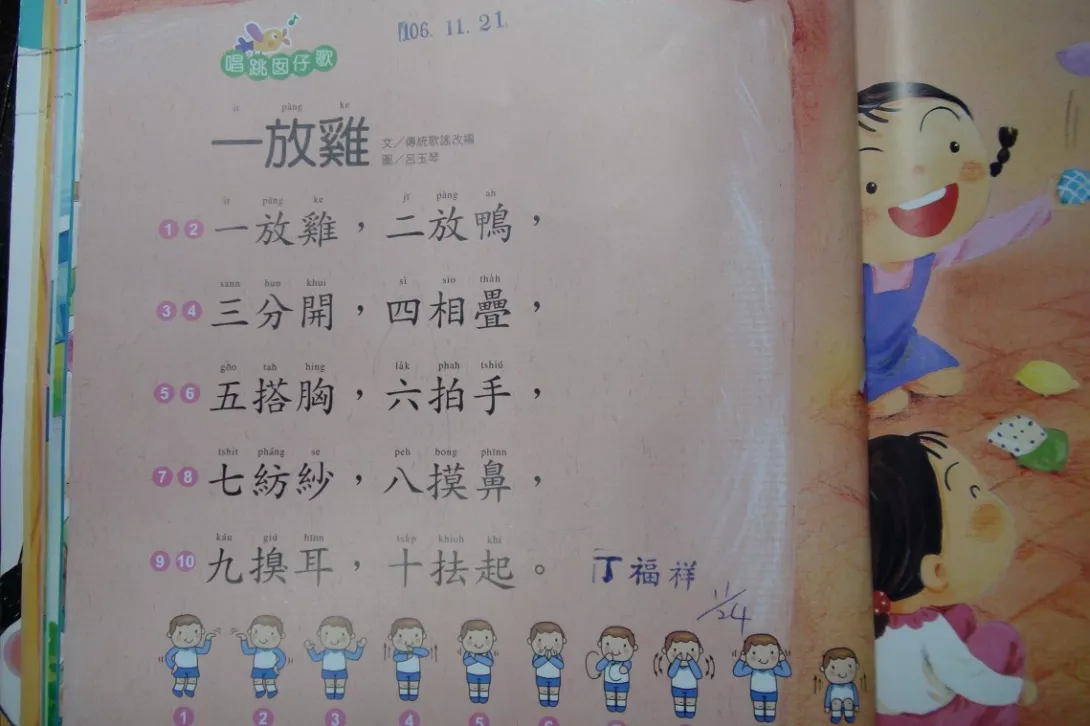 106. 11. 21
唱跳囡仔歌
it pàng ke
一放雞
文／傳統歌謠改編
圖／呂玉琴
it pàng ke jī pàng ah
1 2 一放雞，二放鴨，
sann hun khui sì sio tha̍h
3 4 三分開，四相疊，
gōo tah hing la̍k phah tshiú
5 6 五搭胸，六拍手，
tshit pháng se peh bong phīnn
7 8 七紡紗，八摸鼻，
káu giú hīnn tsa̍p khioh khí
9 10 九搝耳，十抾起。
丁福祥
11/24
1 2 3 4 5 6